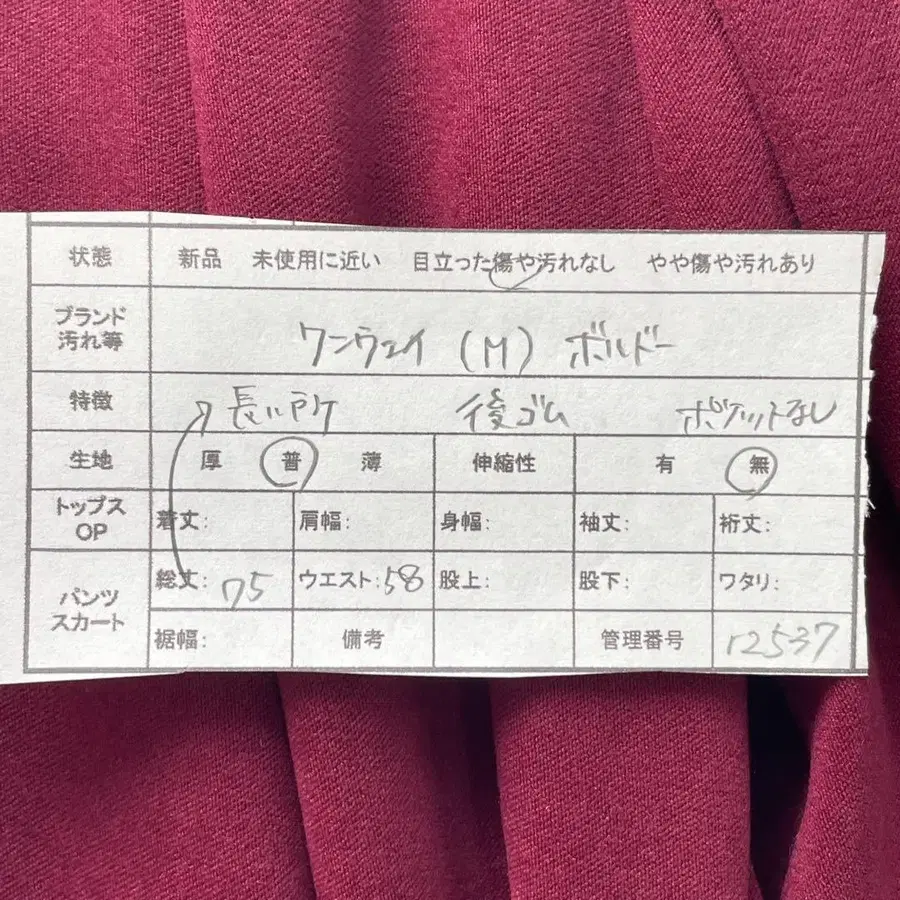 状態 新品 未使用に近い 目立った傷や汚れなし やや傷や汚れあり
ブランド 汚れ等 ワンウェイ (M) ボルドー
特徴 長い所 後ゴム ポケットなし
生地 厚 普 薄 伸縮性 有 無
トップス OP 着丈: 肩幅: 身幅: 袖丈: 裄丈:
パンツ スカート 総丈: 75 ウエスト: 58 股上: 股下: ワタリ:
裾幅: 備考 管理番号 12537